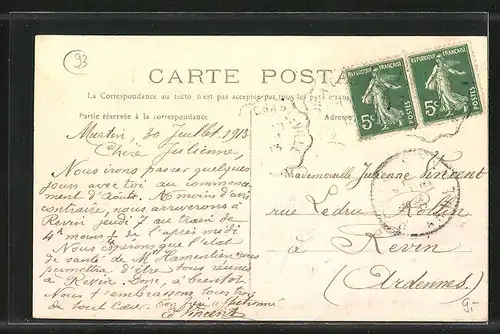 93
CARTE POSTALE
La Correspondance au recto n'est pas acceptée par tous les pays étrangers
Partie réservée à la correspondance
Adresse
REPUBLIQUE FRANÇAISE
5c POSTES
REPUBLIQUE FRANÇAISE
5c POSTES
Murtin, 30 Juillet 1913
Chère Julienne,
Nous irons passer quelques
jours avec toi au commence
ment d'Août. A moins d'avis
contraire, nous arriverons à
Revin jeudi 7 au train de
4h moins de l'après midi
Nous espérons que l'état
de santé de Mr vous
permettra d'être tous réunis
à Revin. Donc, à bientôt
Nous t'embrassons tous trois
de tout Cœur. Ton affectionné
Vincent
Mademoiselle Julienne Vincent
rue Ledru Rollin
à Revin
(Ardennes)